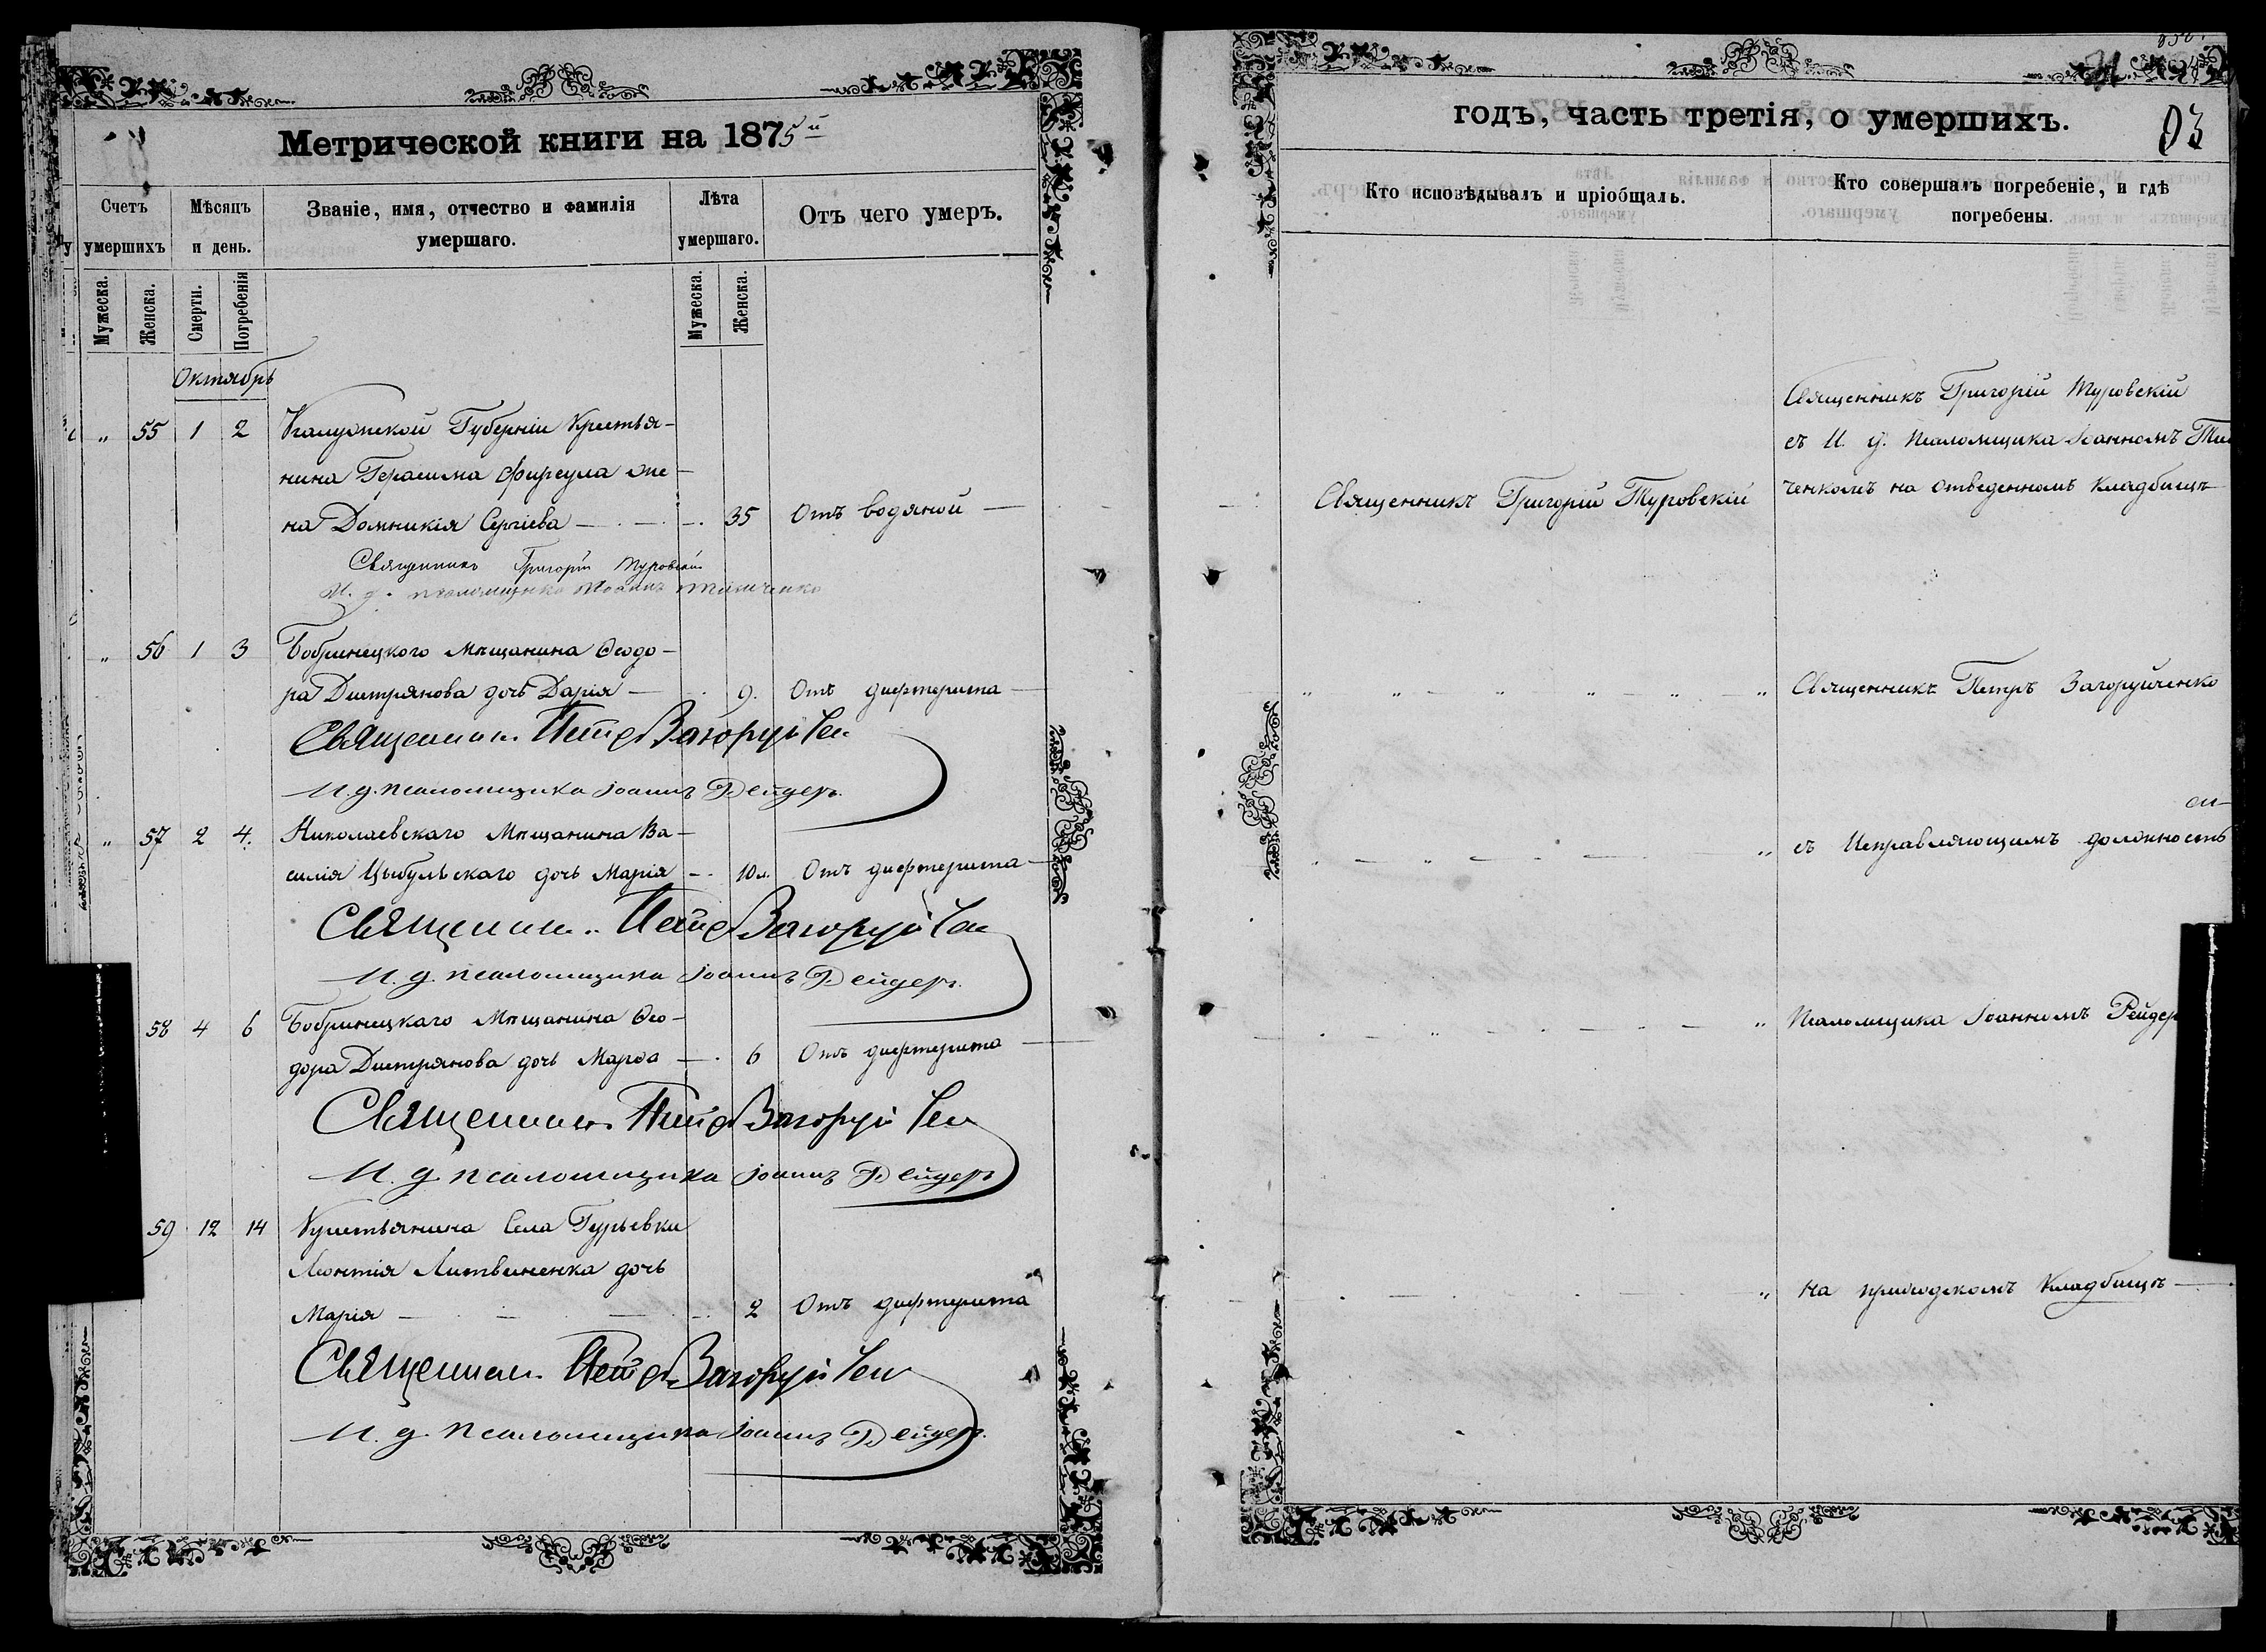 Метрической книги на 1875й
Счетъ умершихъ
Мѣсяцъ и день.
Званіе, имя, отчество и фамилія умершаго.
Лѣта умершаго.
Отъ чего умеръ.
Мужеска.
Женска.
Смерти.
Погребенія
Мужеска.
Женска.
Октябрь
" 55 1 2 Калужской Губерніи Крестья-
нина Герасима Фирсула же-
на Домникія Сергіева — 35 Отъ водяной —
Священникъ Григорій Туровскій
И. д. псаломщика Іоаннъ
" 56 1 3 Бобринецкого Мѣщанина Ѳеодо-
ра Дмитрянова дочь Дарія — 9. Отъ дифтерита —
Священник Петр Загоруйчен
И. д. псаломщика Іоаннъ Рейдеръ.
" 57 2 4. Николаевскаго Мѣщанина Ва-
силія Цыбульскаго дочь Марія — 10 Отъ дифтерита —
Священник Петр Загоруйчен
И. д. псаломщика Іоаннъ Рейдеръ.
58 4 6 Бобринецкаго Мѣщанина Ѳео-
дора Дмитрянова дочь Марѳа — 6 Отъ дифтерита —
Священник Петр Загоруйчен
И. д. псаломщика Іоаннъ Рейдеръ
59 12 14 Крестьянина Села Гурьевки
Леонтія Литвиненка дочь
Марія — 2 Отъ дифтерита
Священник Петр Загоруйчен
И. д. псаломщика Іоаннъ Рейдеръ.
годъ, часть третія, о умершихъ.
93
Кто исповѣдывалъ и пріобщалъ.
Кто совершалъ погребеніе, и гдѣ погребены.
Священникъ Григорій Туровскій
съ И. д. Псаломщика Іоанномъ
ченкомъ на отведенномъ кладбищѣ
Священникъ Григорій Туровскій
" " " " " " Священникъ Петръ Загоруйченко
" съ Исправляющимъ должность
" Псаломщика Іоанномъ Рейдер
" на приходскомъ кладбищѣ —